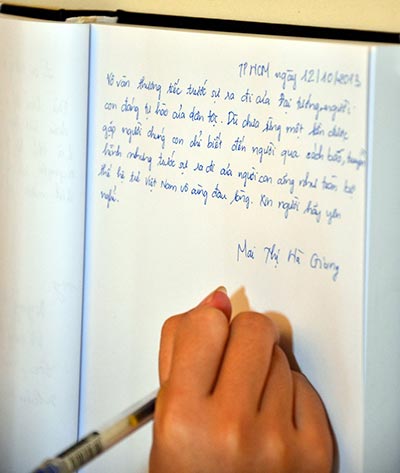 TP HCM ngày 12/10/2013
Vô vàn thương tiếc trước sự ra đi của Đại tướng, người
con đáng tự hào của dân tộc. Dù chưa từng một lần được
gặp người chúng con chỉ biết đến người qua sách báo, truyền
hình nhưng trước sự ra đi của người con cũng như toàn
thế hệ trẻ Việt Nam vô cùng đau lòng. Kín người hãy yên
nghỉ.
Mai Thị Hà Giang